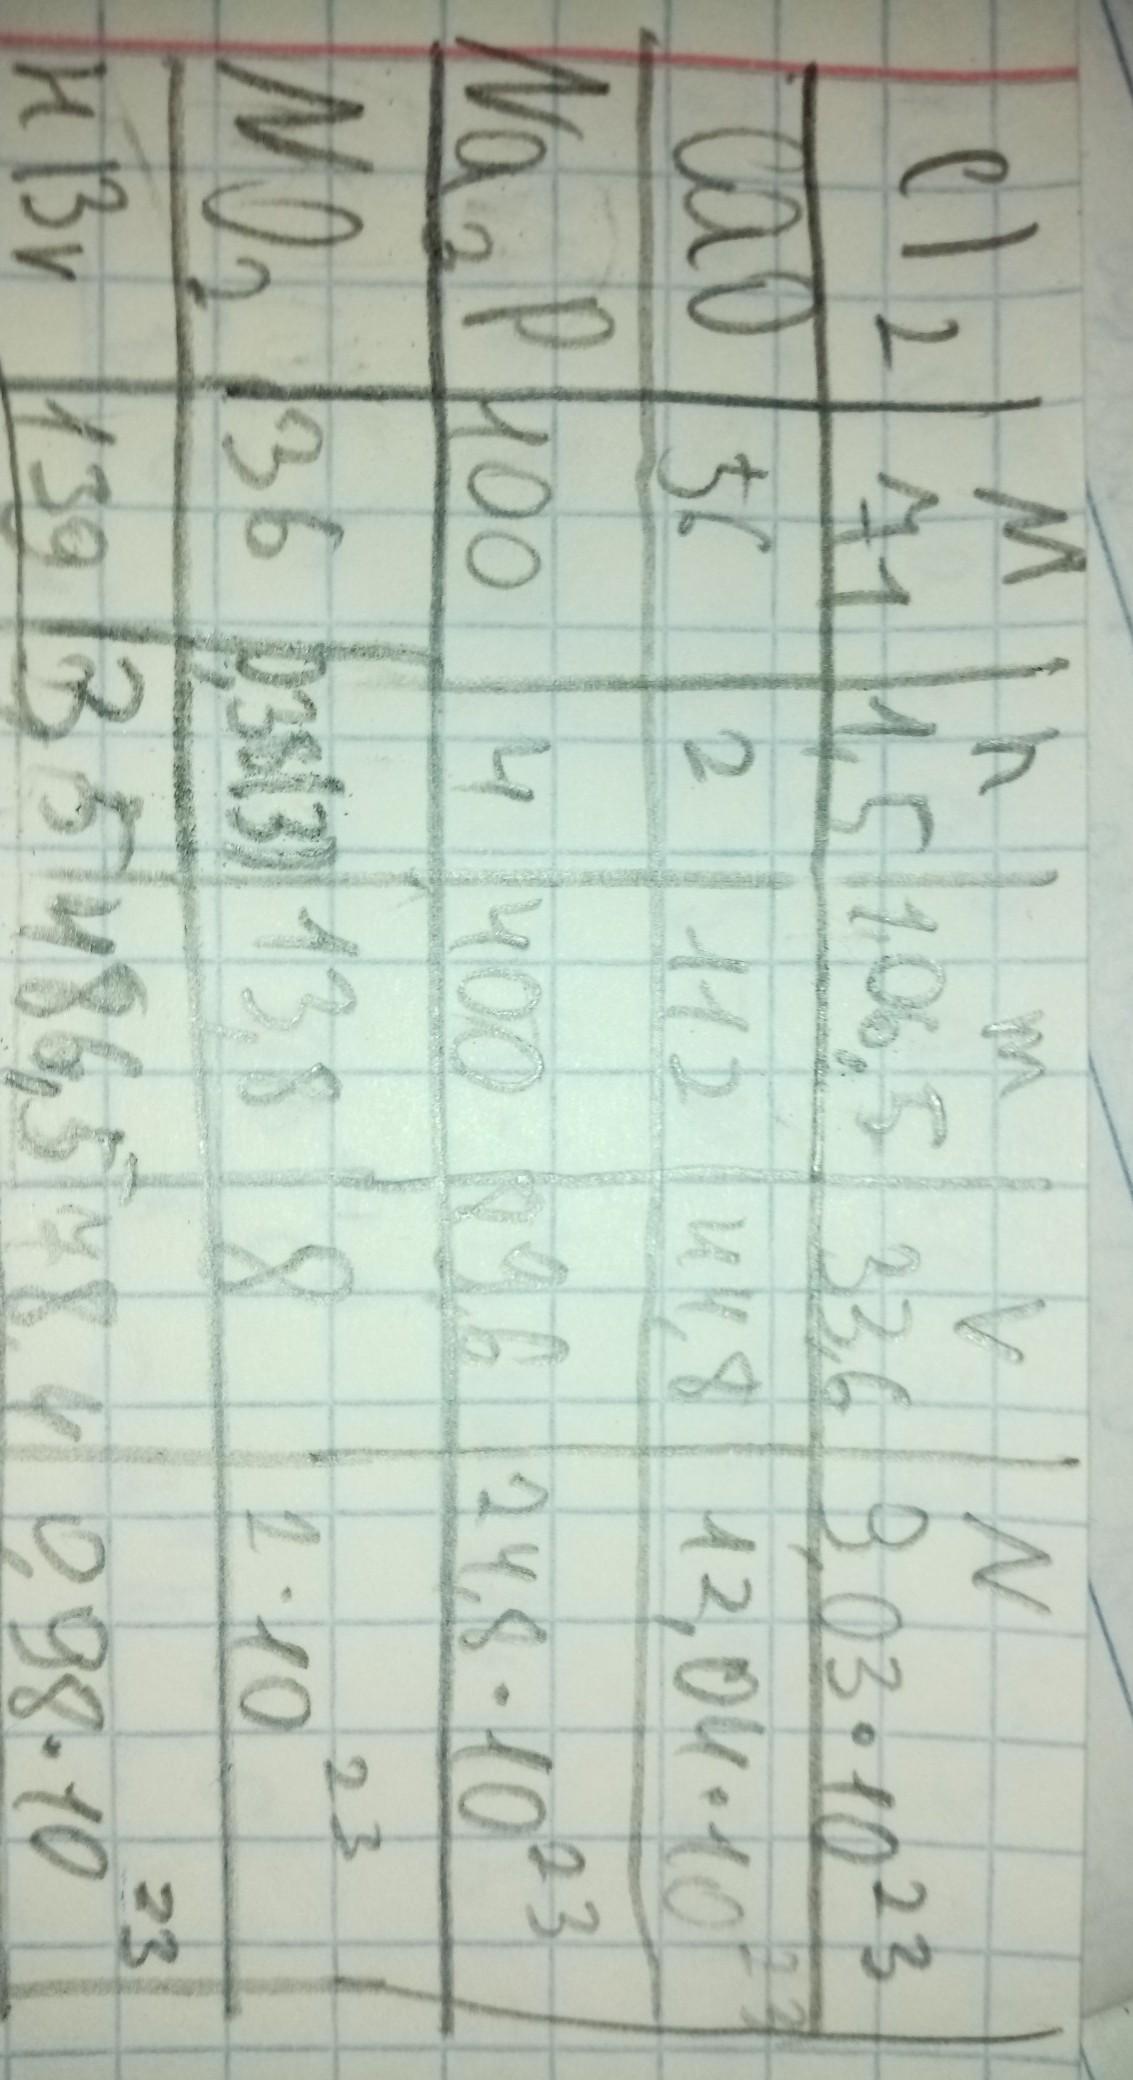 M n m V N
Cl2 71 1,5 106,5 33,6 9,03·10²³
CaO 56 2 112 44,8 12,04·10²³
Na3P 100 4 400 89,6 24,8·10²³
NO2 36 0,38(3) 13,8 8 2·10²³
139 3,5 486,5 78,4 0,98·10²³